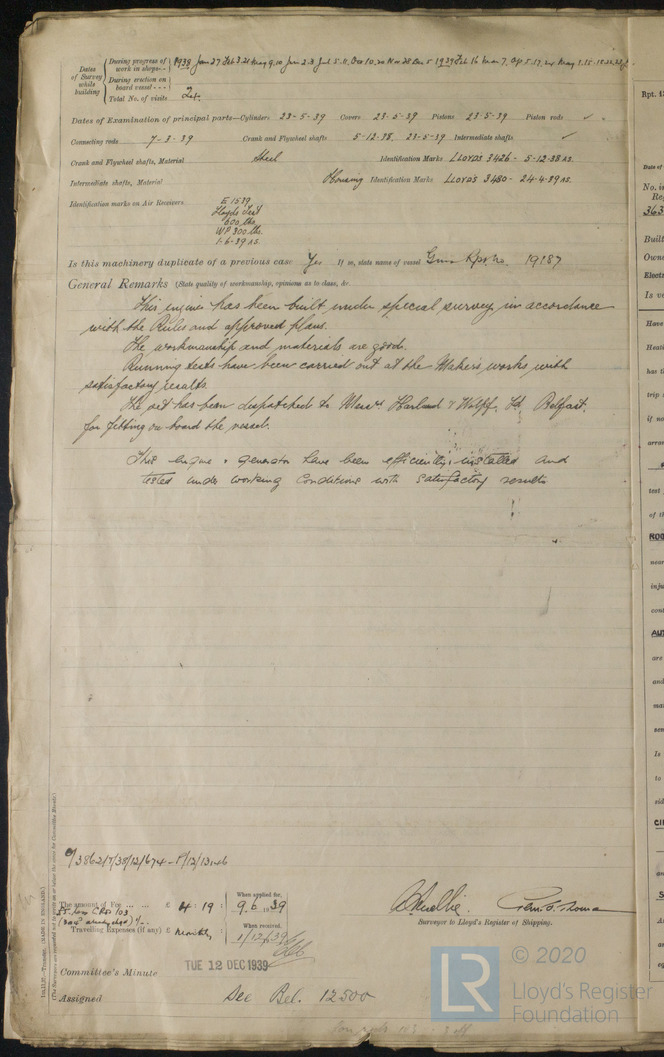 Dates of Survey while building
During progress of work in shops--
1938 Jan 27 Feb 3.21 May 9.10 Jun 2.8 Jul 5.11 Oct 10.20 Nov 28 Dec 5 1939 Feb 16 Mar 7
During erection on board vessel---
Total No. of visits
Dates of Examination of principal parts—Cylinders 23-5-39 Covers 23-5-39 Pistons 23-5-39 Piston rods ✓
Connecting rods 7-3-39 Crank and Flywheel shafts 5-12-38. 23-5-39 Intermediate shafts ✓
Crank and Flywheel shafts, Material Steel Identification Marks LLOYDS 3426 - 5-12-38 AS.
Intermediate shafts, Material Housing Identification Marks LLOYDS 3480 - 24-4-39 AS.
Identification marks on Air Receivers
E 1539
Lloyds Test
600 lbs.
WP 300 lbs.
1-6-39 AS.
Is this machinery duplicate of a previous case Yes If so, state name of vessel Gms Rpt No. 19187
General Remarks (State quality of workmanship, opinions as to class, &c.
This engine has been built under special survey in accordance
with the Rules and approved plans.
The workmanship and materials are good.
Running tests have been carried out at the Makers works with
satisfactory results.
The set has been dispatched to Messrs Harland & Wolff. Ld Belfast.
for fitting on board the vessel.
This engine & generator have been efficiently installed and
tested under working conditions with satisfactory results
The amount of Fee ... £ 4 : 19 :
When applied for,
9.6.1939
Travelling Expenses (if any) £ monthly
When received,
Surveyor to Lloyd's Register of Shipping.
Committee's Minute TUE 12 DEC 1939
Assigned See Bel. 12500
© 2020
LR
Lloyd's Register
Foundation
Rpt. 13
Date of
No. in
Reg
363
Built
Owne
Electr
Is ve
Have
Heati
has t
trip s
if no
arran
test
of th
ROO
near
inju
cont
AUT
are
and
mai
sen
Is
to
sid
CI